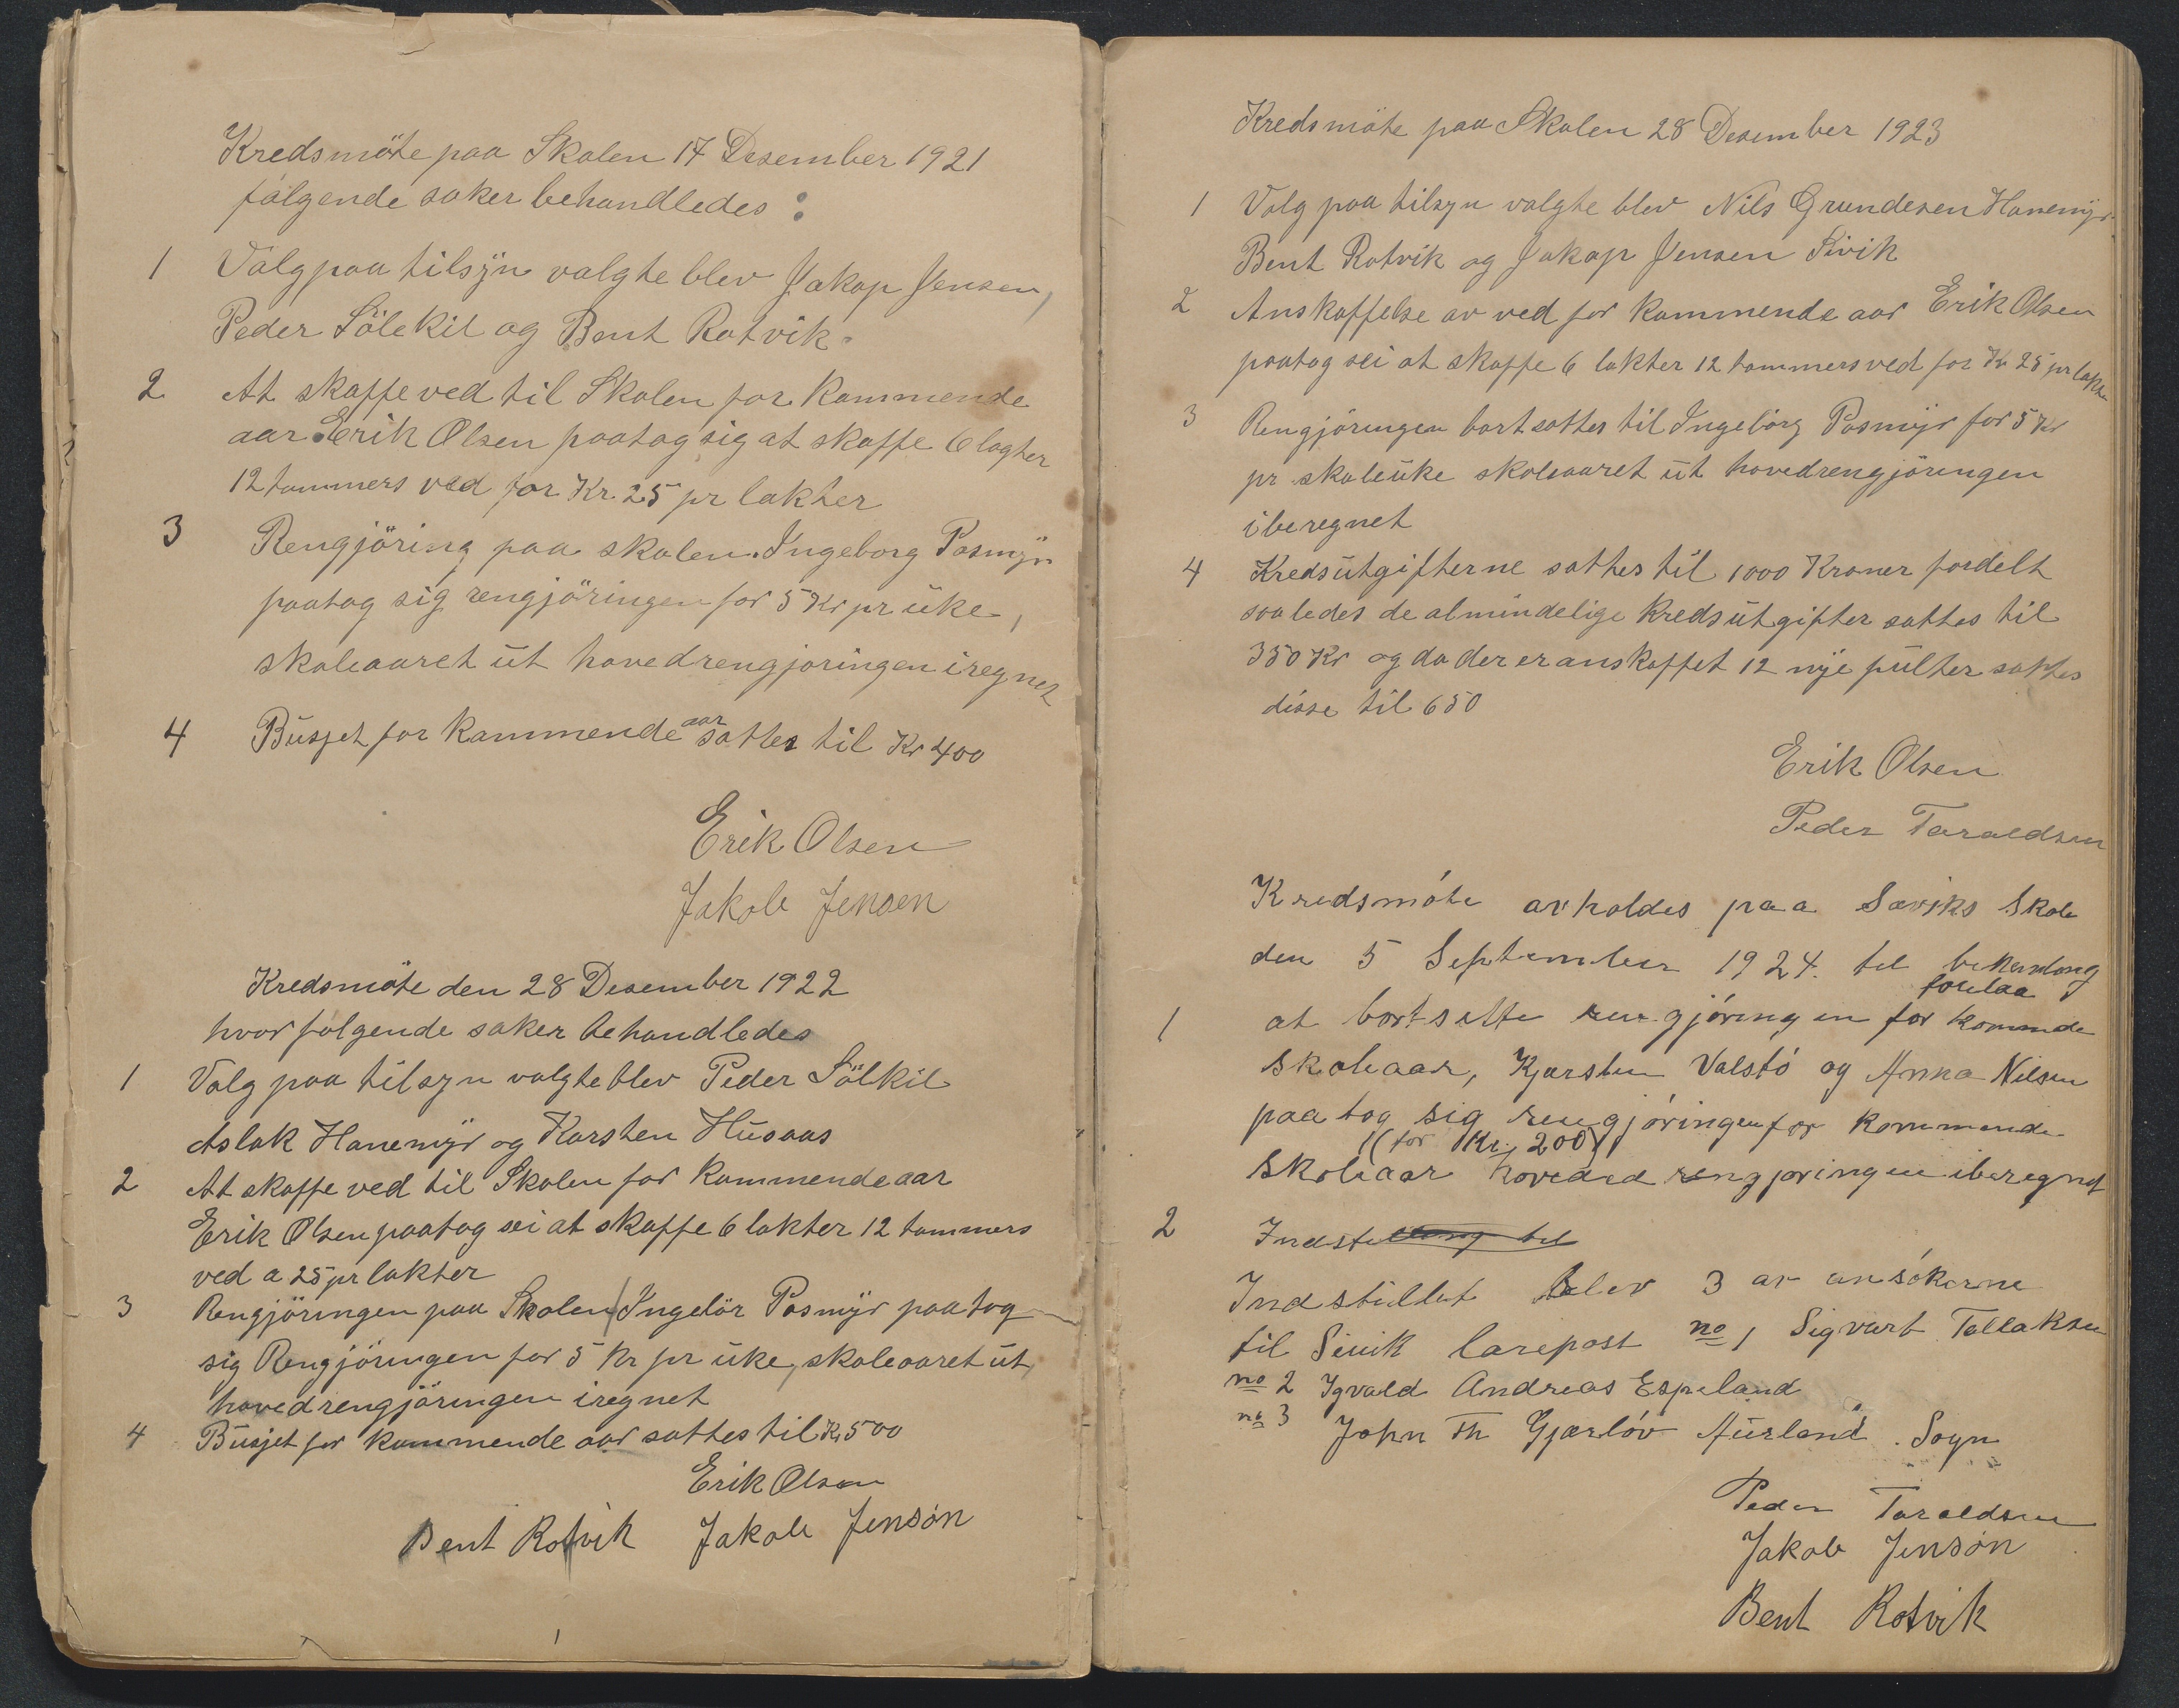 Kredsmöte paa Skolen 17 Desember 1921
følgende saker behandledes :
1 Valg paa tilsÿn valgte blev Jakop Jensen,
Peder Sölekil og Bent Rotvik.
2 At skaffe ved til Skolen for Kommende
aar Erik Olsen paatog sig at skaffe 6 lagter
12 tommers ved for Kr. 25 pr lakter
3 Rengjöring paa skolen. Ingeborg Posmÿr
paatog sig rengjöringen for 5 Kr pr üke,
skoleaaret üt hovedrengjoringen iregnet
4 Büsjet for Kommende aar sattes til Kr 400
Erik Olsen
Jakob Jensen
Kredsmöte den 28 Desember 1922
hvor følgende saker behandledes
1 Valg paa tilsyn valgte blev Peder Sölkil
Aslak Hanemÿr og Karsten Hüsaas
2 At skaffe ved til Skolen for Kommende aar
Erik Olsen paatog sei at skaffe 6 lakter 12 tommers
ved a 25 pr lakter
3 Rengjöringen paa Skolen Ingebör Posmÿr paatog
sig Rengjöringen for 5 Kr pr üke, skoleaaret üt,
hovedrengjöringen iregnet
4 Büsjet for kommende aar sattes til Kr 500
Erik Olsen
Bent Rotvik Jakob Jensón
Kredsmöte paa Skolen 28 Desember 1923
1 Valg paa tilsyn valgte blev Nils Grundesen Hanemÿr
Bent Rotvik og Jakop Jensen Sivik
2 Anskaffelse av ved for kommende aar Erik Olsen
paatog sei at skaffe 6 lakter 12 tommers ved for Kr 25 pr lakter
3 Rengjöringen bortsattes til Ingeborg Posmÿr for 5 Kr
pr skoleüke skoleaaret üt hovedrengjöringen
iberegnet
4 Kredsütgifterne sattes til 1000 Kroner fordelt
saaledes de almindelige Kredsütgifter sattes til
350 Kr og da der er anskaffet 12 nÿe pülter sattes
disse til 650
Erik Olsen
Peder Taraldsen
Kredsmóte avholdes paa Søviks Skole
den 5 September 1924. til behandlong
forelaa
1 at bortsette rengjóringen for kommende
skoleaar, Kjersten Valstó og Anna Nilsen
paatog sig rengjóringen for kommende
(for Kr. 200)
skoleaar hovedrengjoringen iberegnet
2 Indstilling til
Indstillet blev 3 av ansókerne
til Sivik larepost no 1 Sigvart Tallaksen
no 2 Ygvald Andreas Espeland
no 3 John Th Gjærlóv Aurland. Sogn
Peder Taraldsen
Jakob Jensón
Bent Rotvik